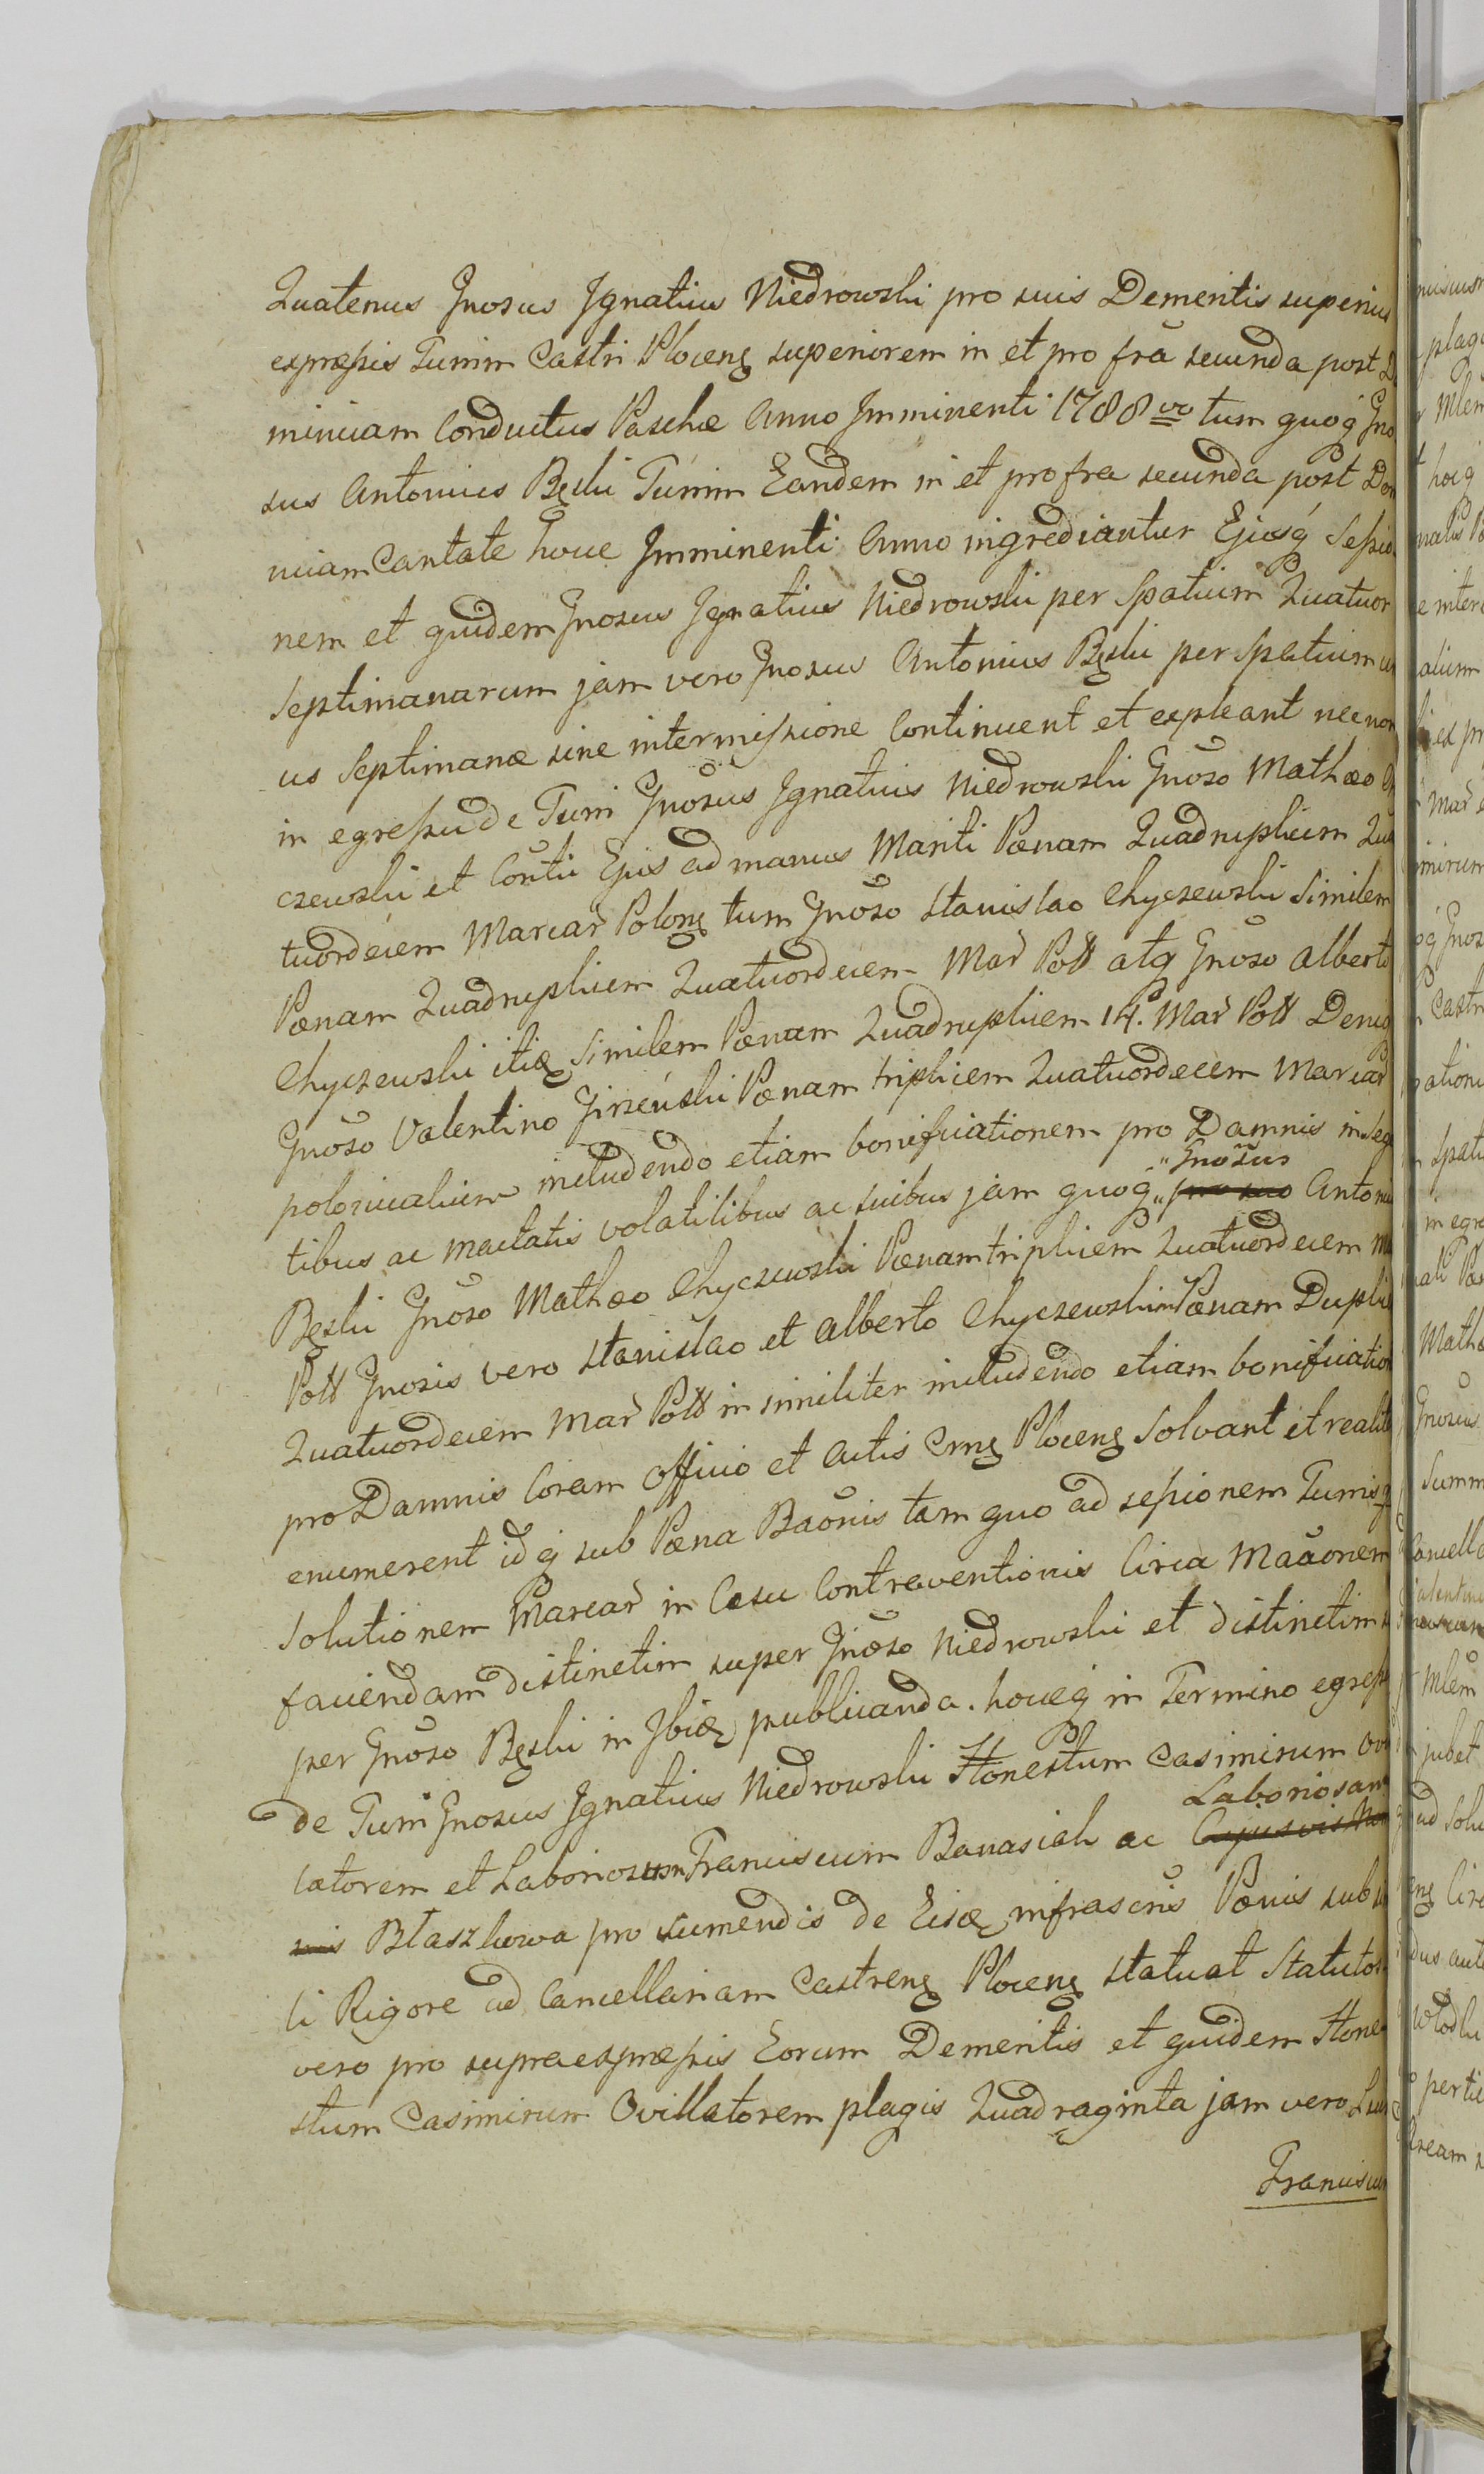 Quatenus Gnosus Ignatius Niedrowski pro suis Demeritis superius
expressis Turrim Castri Plocenẽ superiorem in et pro frã secunda post D
minicam Conductus Paschæ Anno Imminenti 1788vo tum quoq Gno
sus Antonius Bęski Turrim Eandem in et pro fra secunda post Dom
nicam Cantate hocce Imminenti Anno ingrediantur Ejusq́ Sessio
nem et quidem Gnosus Ignatius Niedrowski per Spatium Quatuor
Septimanarum jam vero Gnosus Antonius Bęski per Spatium un
us Septimanæ sine intermissione Continuent et expleant necnon
in egressu de Turri Gnosus Ignatius Niedrowski Gnõso Mathæo
czewski et Cõnti Ejus ad manus Mariti Pænam Quadruplicem Qua
tuordecim Marcar̃ Polonẽ tum Gnõso Stanislao Chyczewski Similem
Pænam Quadruplicem Quatuordecem Mar̃ Pöll atq Gnõso Alberto
Chyczewski itiæ Similem Pænam Quadruplicem 14. Mar̃ Poll Deniq
Gnõso Valentino Girzeński Pænam triplicem Quatuordecem Marcar̃
polonicalium includendo etiam bonificationem pro Damnis in Seg
tibus ac mactatis volatilibus ac suibus jam quoq Gnosus Antoni
Bęski Gnõso Mathæo Chyczewski Pænam triplicem Quatuordecem M
Poll Gnosis vero Stanislao et Alberto Chyczewskim Pænam Duplic
Quatuordecem Mar̃ Poll in similiter includendo etiam bonificatio
pro Damnis Coram Officio et Actis Crnẽ Plocenẽ Solvant et realite
enumerent idq sub Pæna Baõnis tam quo ad sessionem Turris q
Solutionem Marcar̃ in Casu Contraventionis Circa Maãonem
faciendam distinctim super Gnõso Niedrowski et distinctim s
per Gnõso Bęski in Ibiæ publicanda. hocceq in Termino egress
de Turri Gnosus Ignatius Niedrowski Honestum Casimirum Ovi
Laboriosam
latorem et Laboriosum Franciscum Banasiak ac Cujusvis No
nis Błaszkowa pro sumendis de Eisæ infrascris Pænis sub si
li Rigore ad Cancellariam Castrenẽ Plocenẽ statuat Statutos
vero pro supraexpressis Eorum Demeritis et quidem Hone
stum Casimirum Ovillatorem plagis Quadraginta jam vero
Franciscum